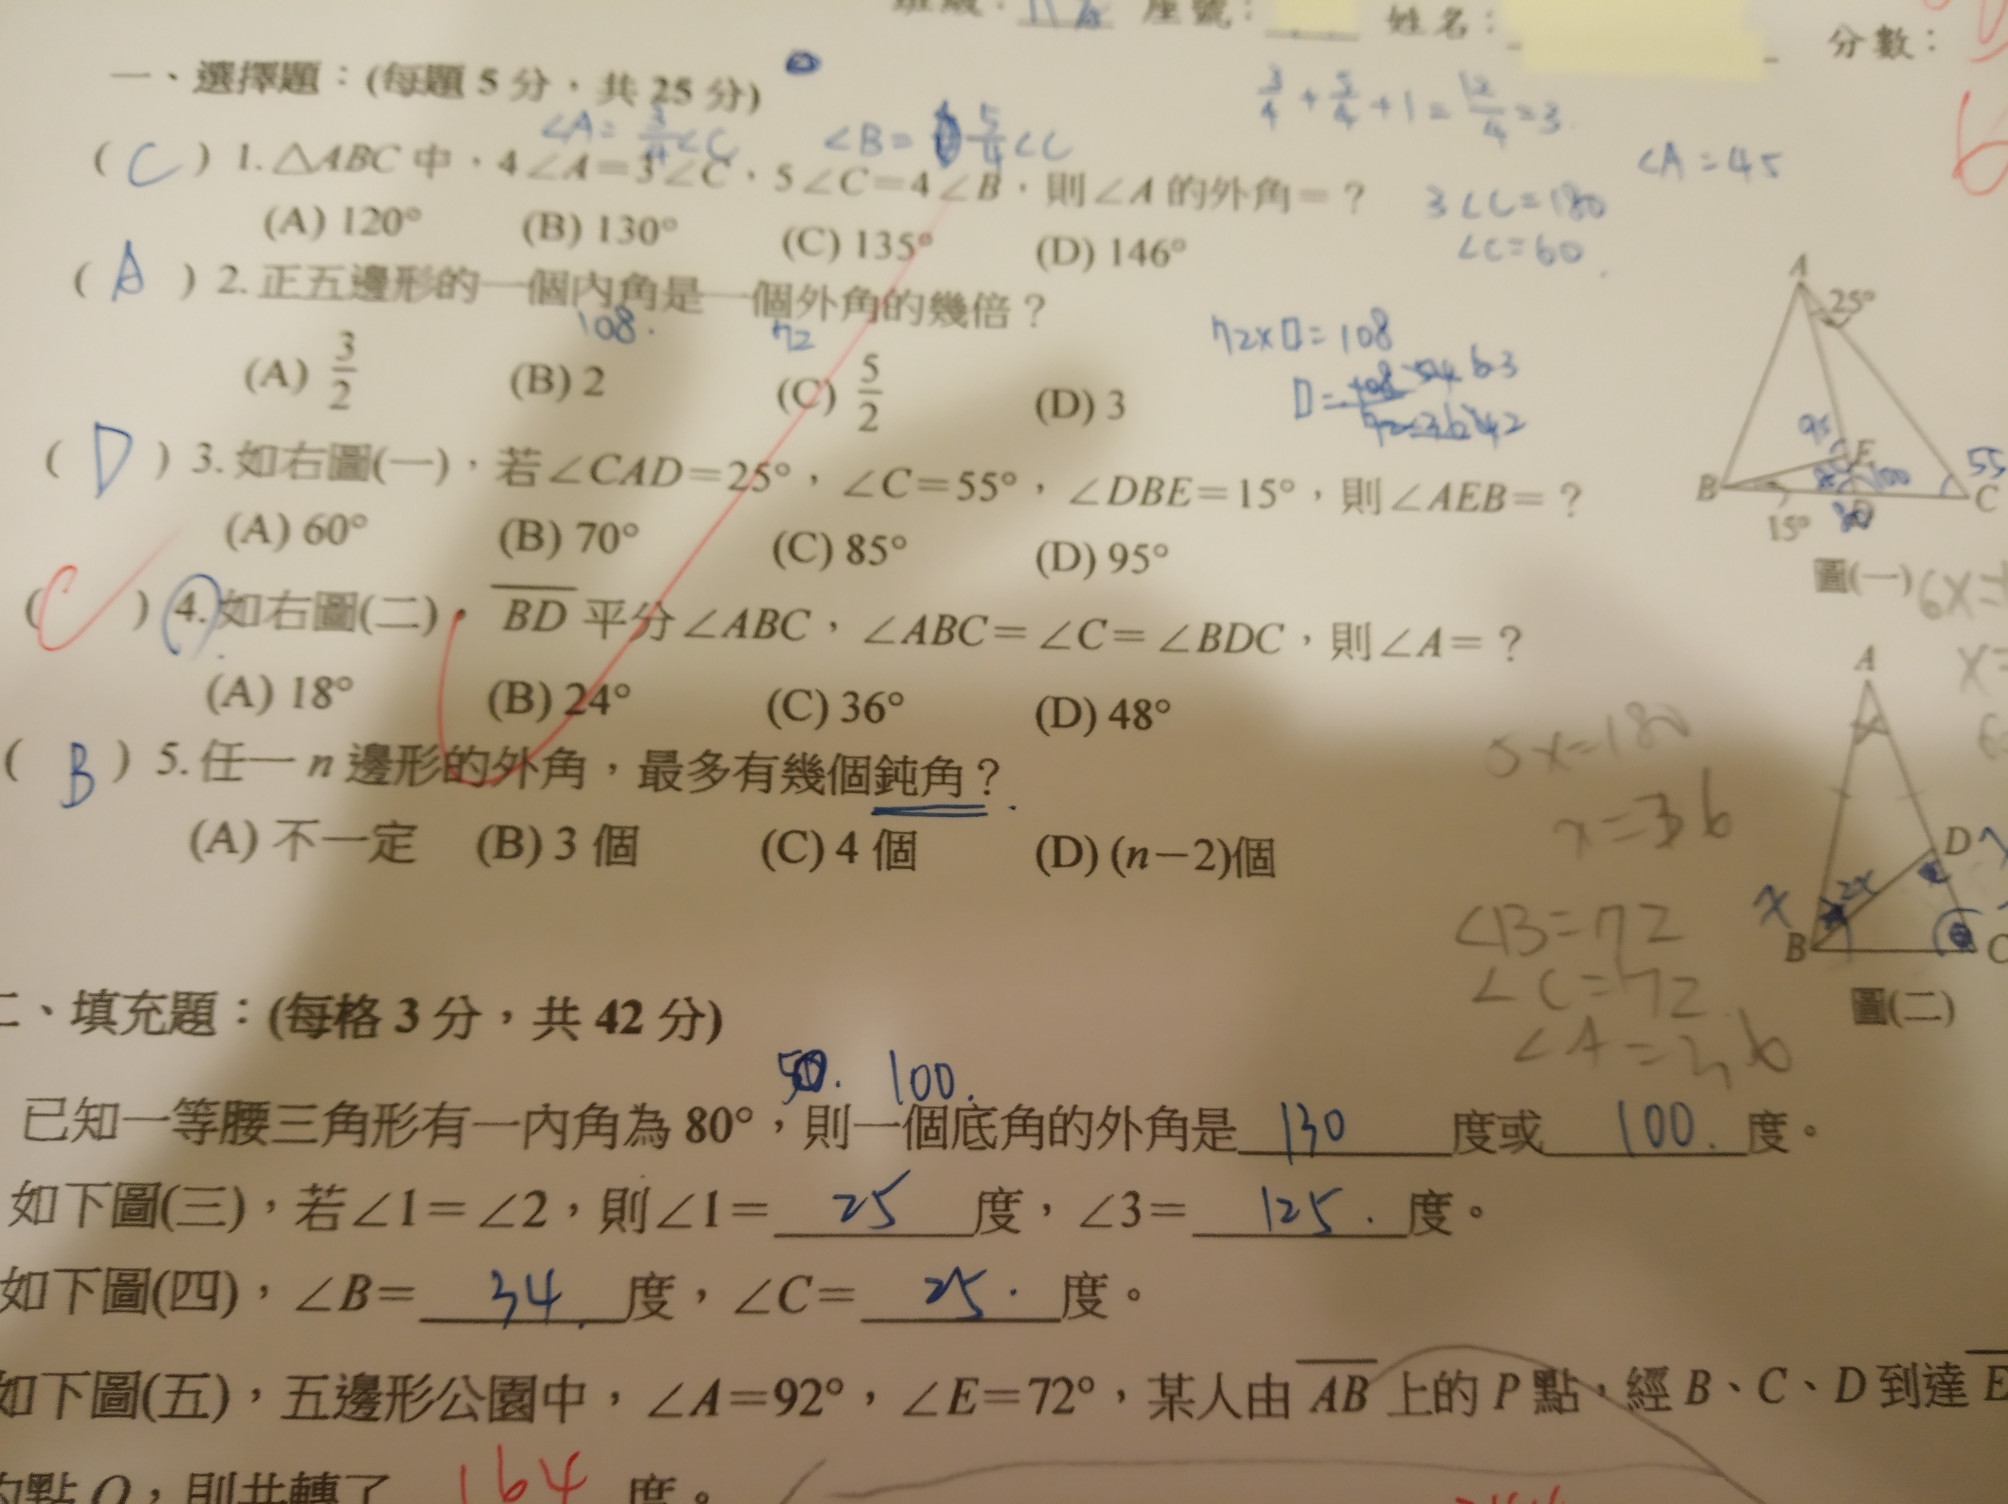 座號：
姓名：
分數：
一、選擇題：(每題 5 分，共 25 分)
3/4 + 5/4 + 1 = 12/4 = 3
∠A = 3/4 ∠C
∠B = 5/4 ∠C
( C ) 1. △ABC 中，4∠A＝3∠C，5∠C＝4∠B，則∠A 的外角＝？
∠A = 45
3∠C = 180
∠C = 60
(A) 120° (B) 130° (C) 135° (D) 146°
( A ) 2. 正五邊形的一個內角是一個外角的幾倍？
108. 72
72×□=108
(A) 3/2 (B) 2 (C) 5/2 (D) 3
( D ) 3. 如右圖(一)，若∠CAD＝25°，∠C＝55°，∠DBE＝15°，則∠AEB＝？
(A) 60° (B) 70° (C) 85° (D) 95°
A
25°
95
E
100
55
B
C
15°
圖(一)
6X=
( C ) 4. 如右圖(二)，BD 平分∠ABC，∠ABC＝∠C＝∠BDC，則∠A＝？
(A) 18° (B) 24° (C) 36° (D) 48°
5x=180
x=36
∠B=72
∠C=72
∠A=36
A
D
x
2x
B
C
圖(二)
( B ) 5. 任一 n 邊形的外角，最多有幾個鈍角？
(A) 不一定 (B) 3 個 (C) 4 個 (D) (n－2)個
二、填充題：(每格 3 分，共 42 分)
50. 100.
已知一等腰三角形有一內角為 80°，則一個底角的外角是 130 度或 100. 度。
如下圖(三)，若∠1＝∠2，則∠1＝ 25 度，∠3＝ 125. 度。
如下圖(四)，∠B＝ 34 度，∠C＝ 25. 度。
如下圖(五)，五邊形公園中，∠A＝92°，∠E＝72°，某人由 AB 上的 P 點，經 B、C、D 到達 E
的點 Q，則共轉了 164 度。